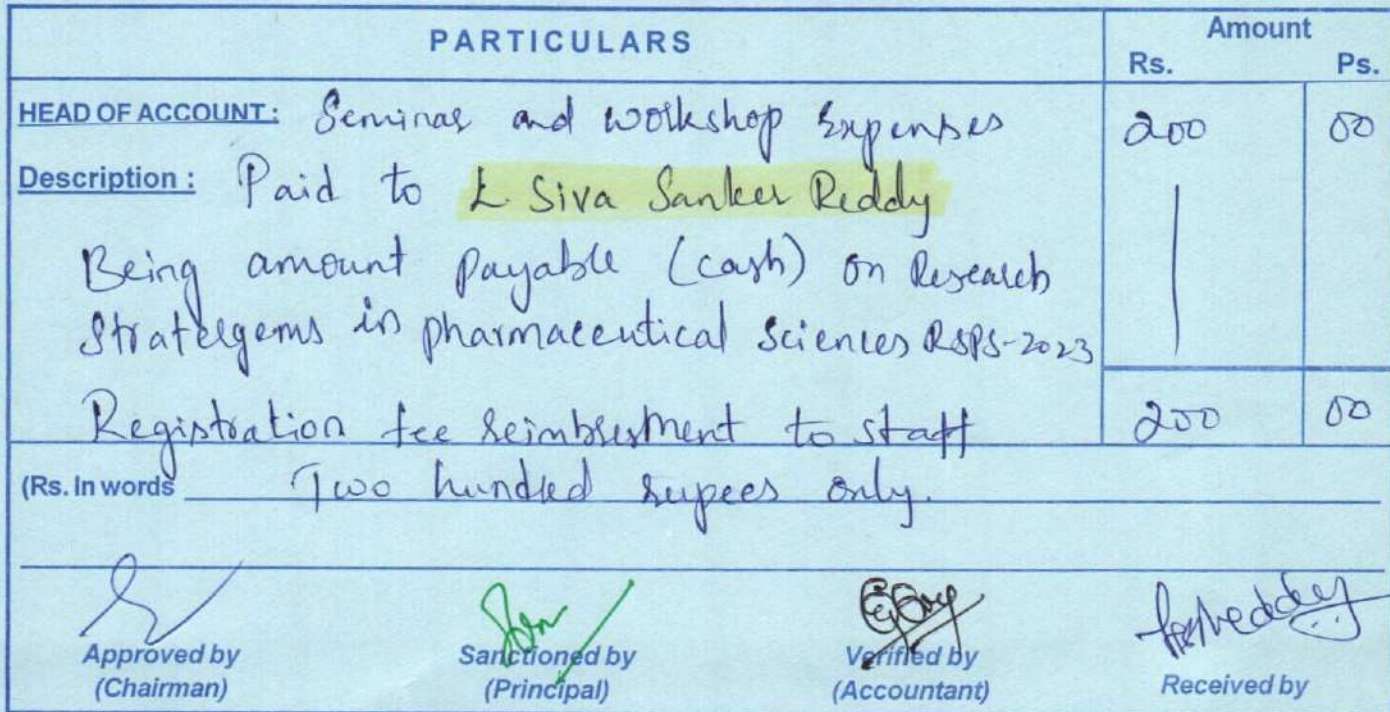 PARTICULARS
Amount
Rs. Ps.
HEAD OF ACCOUNT: Seminar and workshop Expenses 200 00
Description: Paid to L Siva Sanker Reddy
Being amount payable (cash) on Research
Stratelgems in pharmaceutical sciences RSPS-2023
Registration fee reimbresment to staff 200 00
(Rs. In words Two hundred rupees only.
Approved by Sanctioned by Verified by Received by
(Chairman) (Principal) (Accountant)